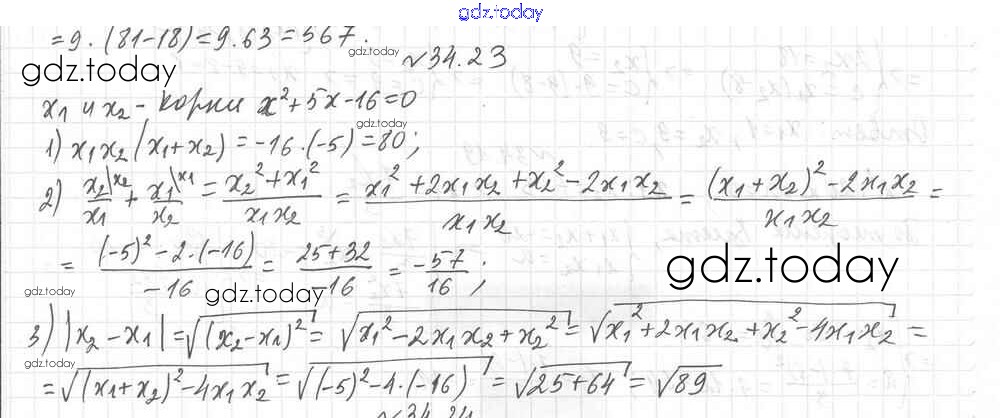 gdz.today
= 9 · (81-18) = 9 · 63 = 567.
gdz.today
№34.23
gdz.today
x₁ и x₂ - корни x² + 5x - 16 = 0
gdz.today
1) x₁x₂(x₁+x₂) = -16 · (-5) = 80;
2) x₂\x₂/x₁ + x₁\x₁/x₂ = (x₂² + x₁²)/(x₁x₂) = (x₁² + 2x₁x₂ + x₂² - 2x₁x₂)/(x₁x₂) = ((x₁+x₂)² - 2x₁x₂)/(x₁x₂) =
= ((-5)² - 2·(-16))/(-16) = (25+32)/(-16) = -57/16;
gdz.today
gdz.today
gdz.today
3) |x₂ - x₁| = √((x₂-x₁)²) = √(x₁² - 2x₁x₂ + x₂²) = √(x₁² + 2x₁x₂ + x₂² - 4x₁x₂) =
gdz.today
= √((x₁+x₂)² - 4x₁x₂) = √((-5)² - 4·(-16)) = √(25+64) = √89
№34.24